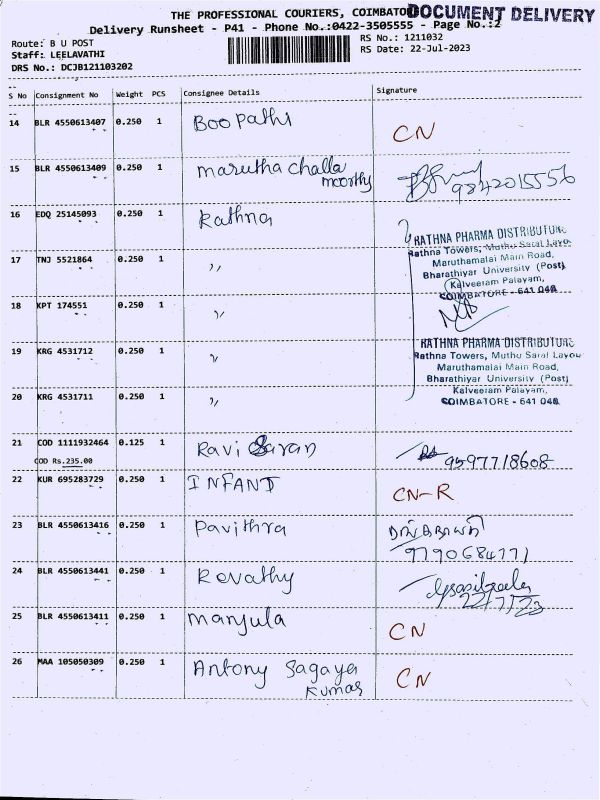 THE PROFESSIONAL COURIERS, COIMBATO DOCUMENT DELIVERY
Delivery Runsheet - P41 - Phone No.:0422-3505555 - Page No.:2
Route: B U POST RS No.: 1211032
Staff: LEELAVATHI RS Date: 22-Jul-2023
DRS No.: DCJB121103202
S No Consignment No Weight PCS Consignee Details Signature
14 BLR 4550613407 0.250 1 Boopathi CN
15 BLR 4550613409 0.250 1 marutha challa
moorthy 9842015556
16 EDQ 25145093 0.250 1 Rathna
RATHNA PHARMA DISTRIBUTORS
Rathna Towers, Muthu Saral Layou
Maruthamalai Main Road,
17 TNJ 5521864 0.250 1 ,,
Bharathiyar University (Post)
Kalveeram Palayam,
COIMBATORE - 641 046
18 KPT 174551 0.250 1 ,,
19 KRG 4531712 0.250 1 ,,
RATHNA PHARMA DISTRIBUTORS
Rathna Towers, Muthu Saral Layou
Maruthamalai Main Road,
Bharathiyar University (Post)
20 KRG 4531711 0.250 1 ,,
Kalveeram Palayam,
COIMBATORE - 641 046
21 COD 1111932464 0.125 1 Ravi Saran 9597718608
COD Rs.235.00
22 KUR 695283729 0.250 1 INFANT CN-R
23 BLR 4550613416 0.250 1 Pavithra
9790684771
24 BLR 4550613441 0.250 1 Revathy
22/7/23
25 BLR 4550613411 0.250 1 manjula CN
26 MAA 105050309 0.250 1 Antony Sagaya
Kumar CN